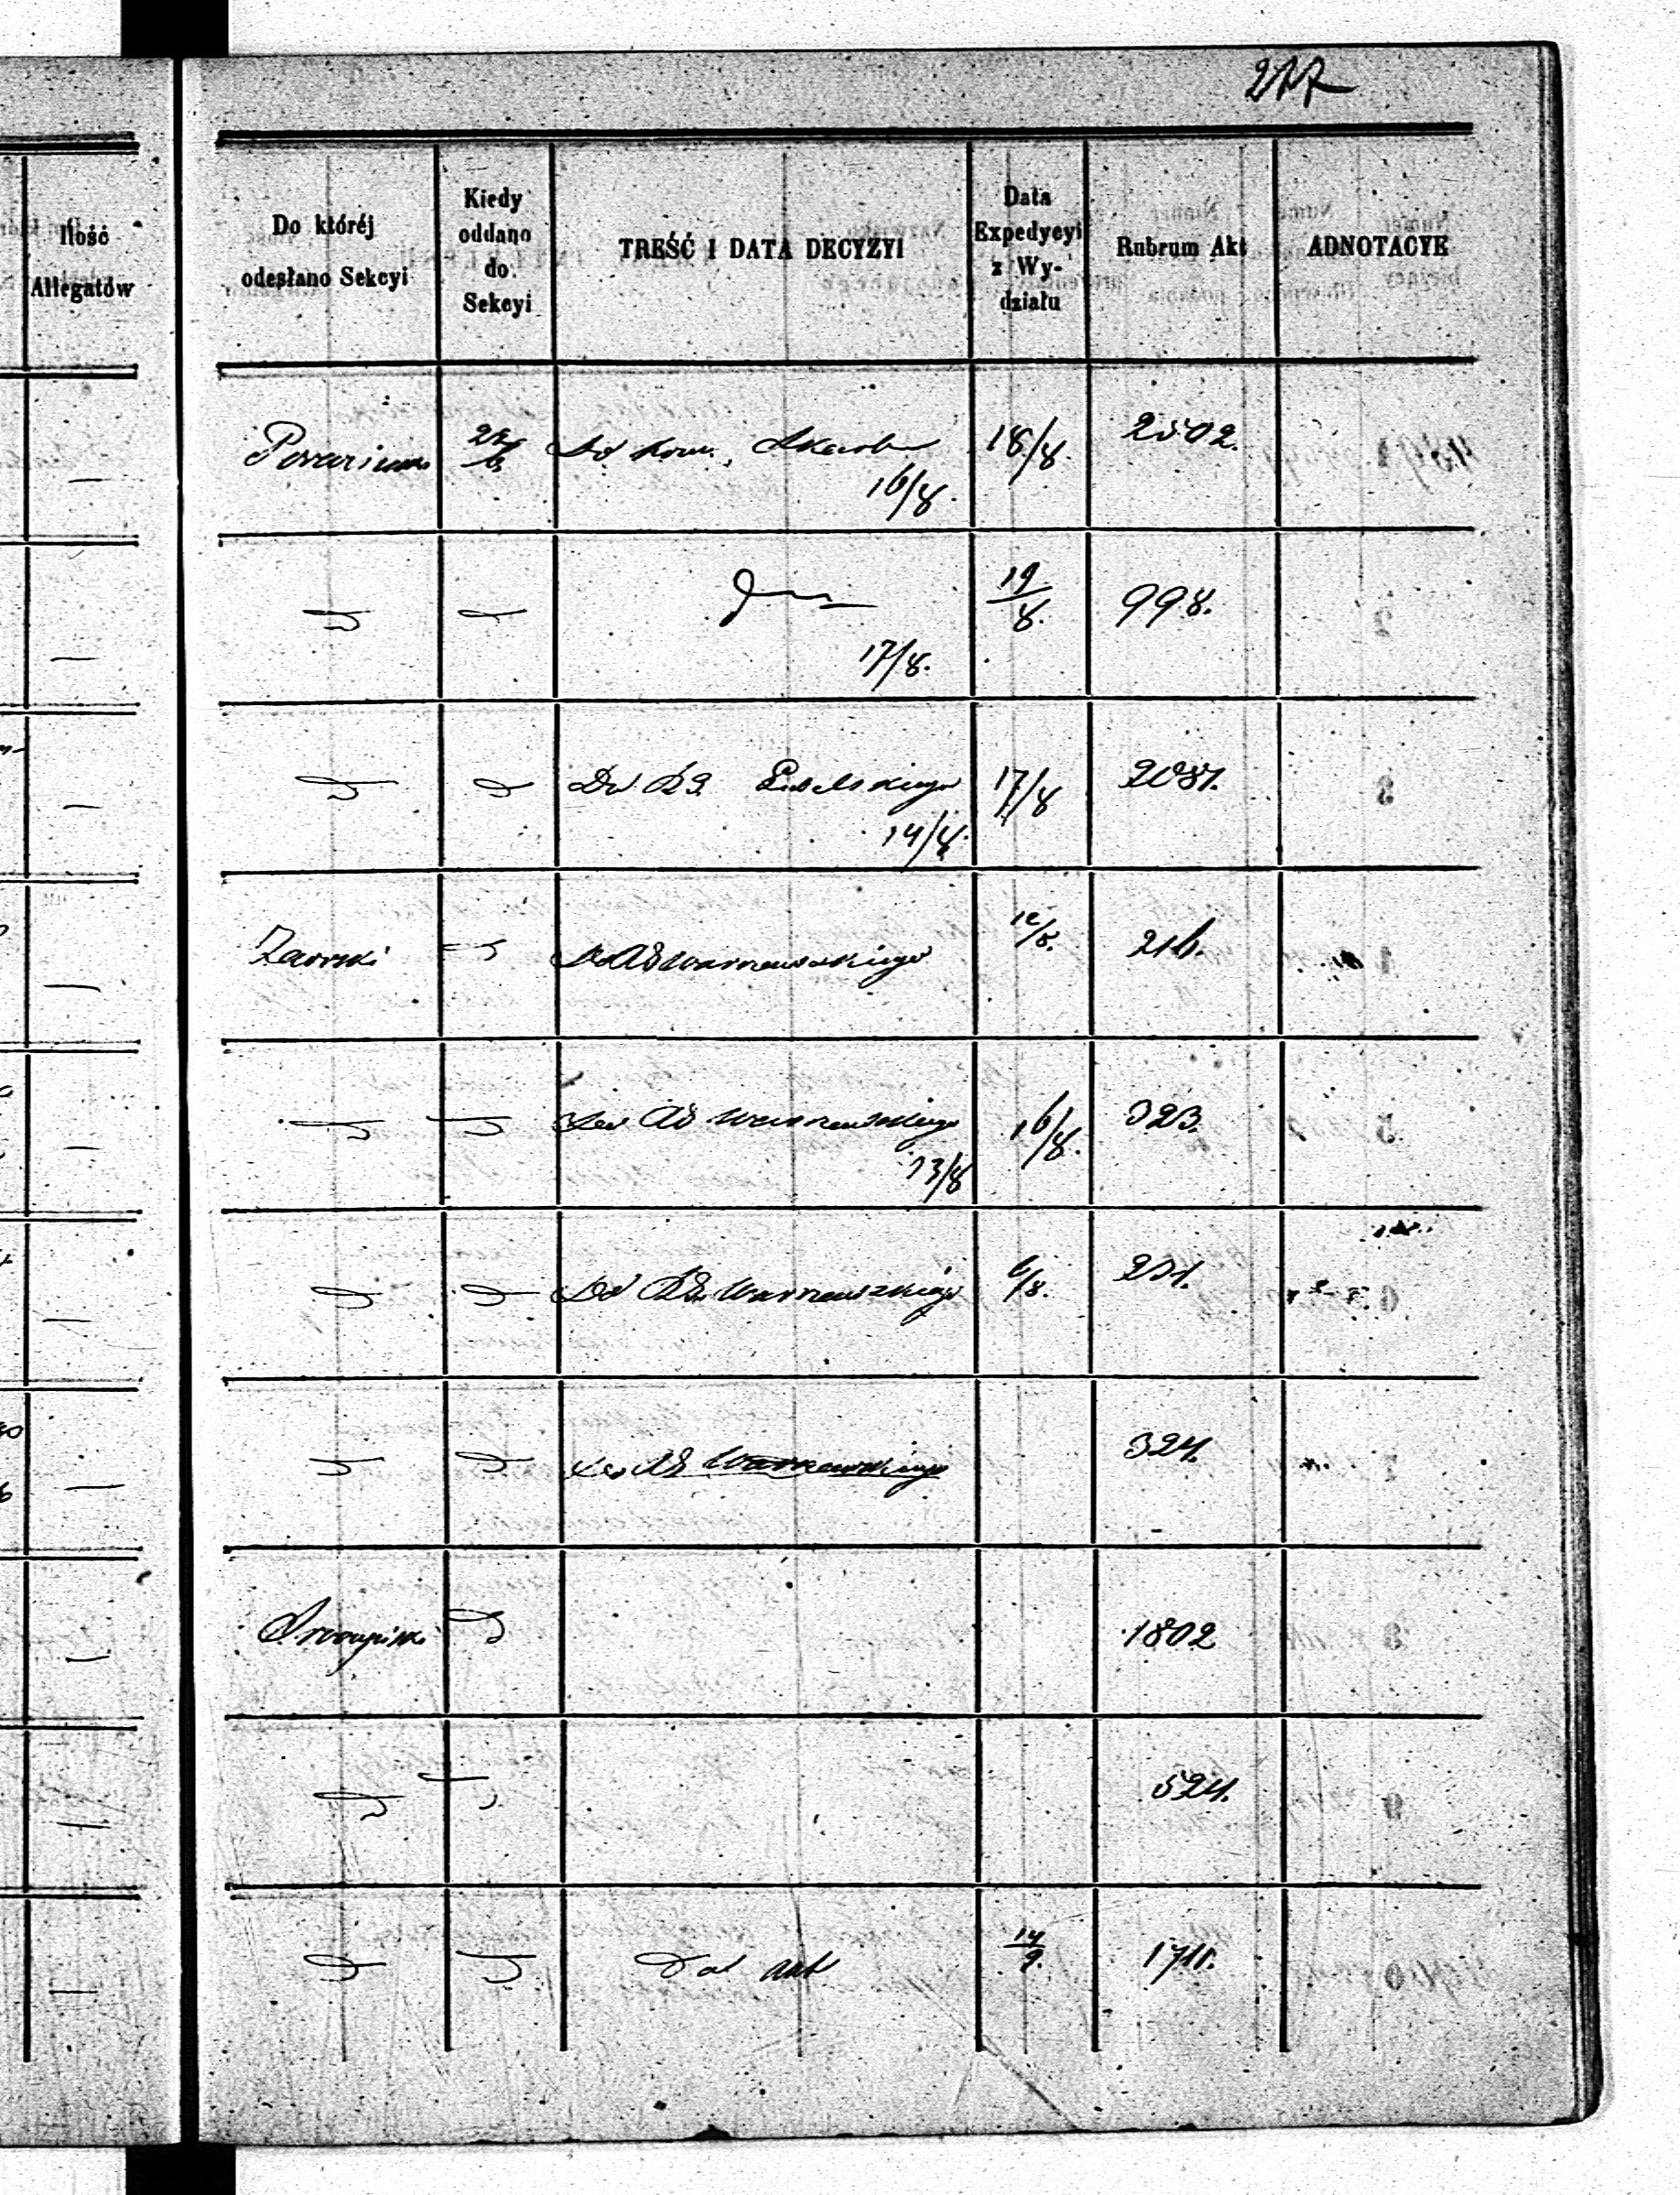 277
Ilość
Allegatów
Do któréj
odesłano Sekcyi
Kiedy
oddano
do
Sekcyi
TREŚĆ I DATA DECYZYI
Data
Expedycyi
z Wy-
działu
Rubrum Akt
ADNOTACYE
Do Kom. Skarbu 18/8. 2502.
16/8.
19/8. 998.
17/8.
Do RG. Lubelskiego 17/8 2081.
14/8.
Zawski Do RG Warszawskiego 216.
Do RG Warszawskiego 16/8. 323.
13/8
Do RG. Warszawskiego 6/8. 251.
Do RG Warszawskiego 324.
1802
524.
Do akt 14/9. 1711.